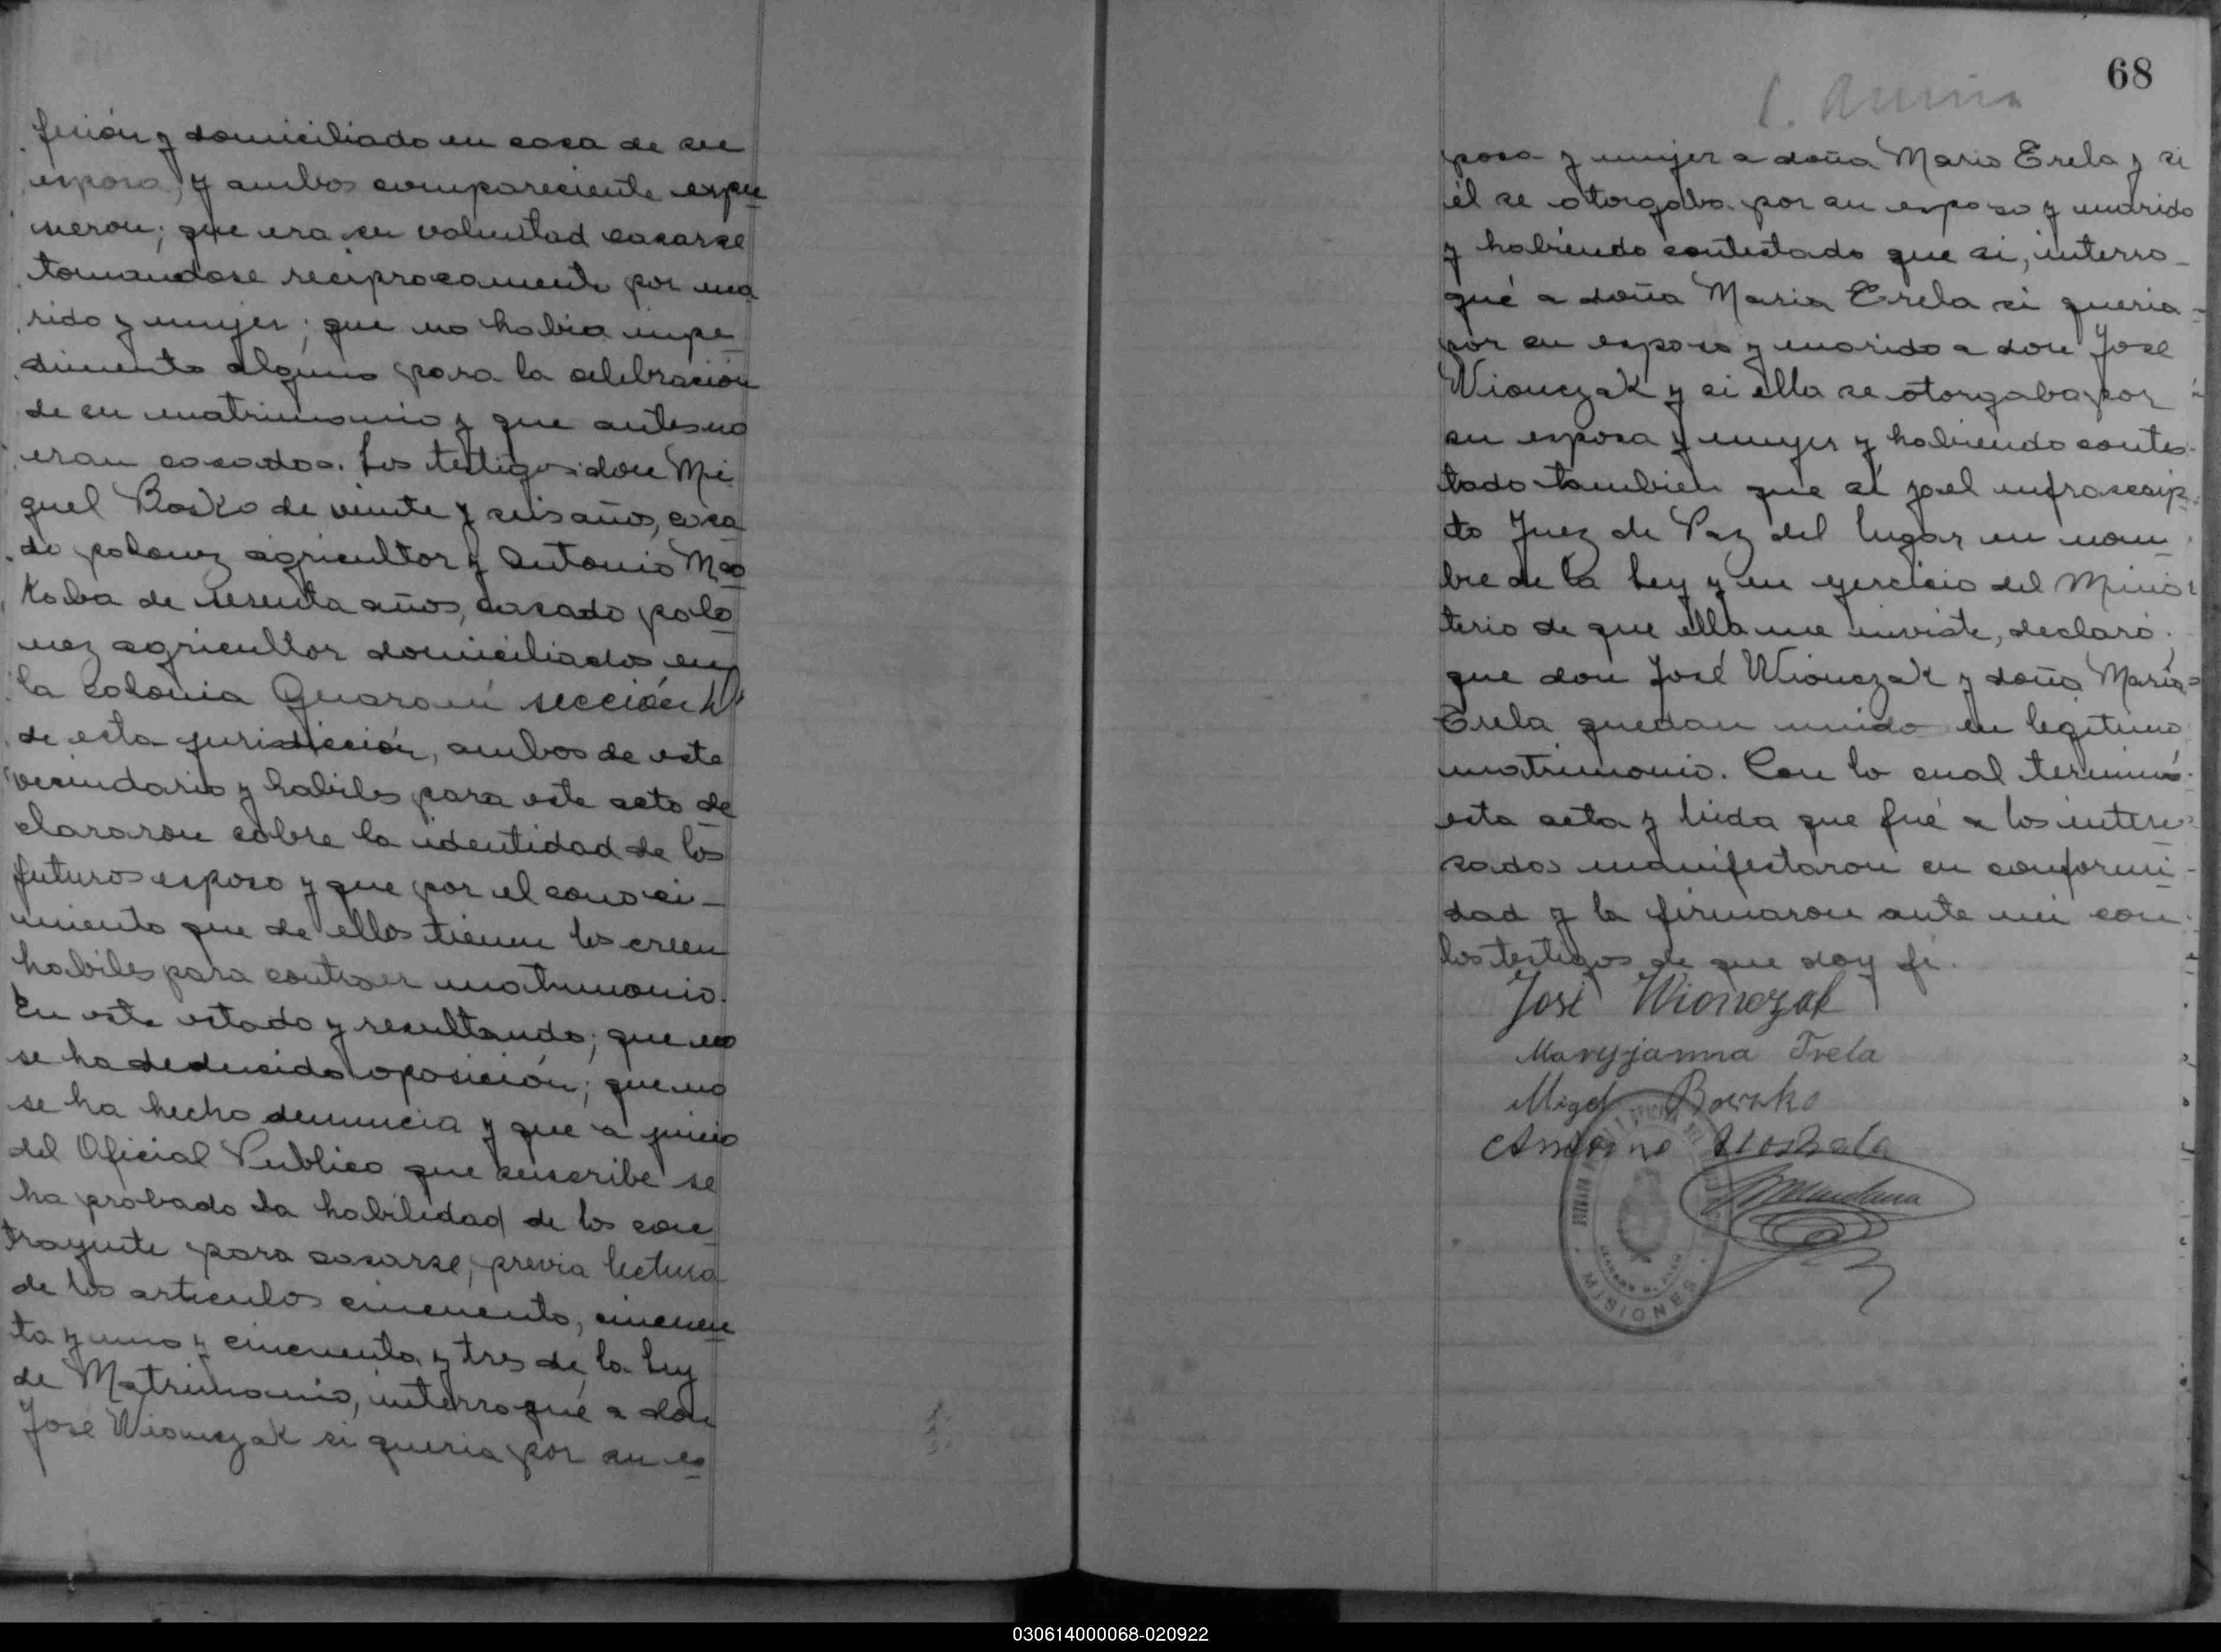 fesión y domiciliado en casa de su
esposa, y ambos compareciente expu
sieron; que era su voluntad casarse
tomandose reciprocamente por ma
rido y mujer; que no habia impe
dimento alguno para la celebración
de su matrimonio y que antes no
eran casados. Los testigos: don Mi
guel Bosko de veinte y seis años, casa
do polonez agricultor y Antonio Mos
koba de sesenta años, casado polo
nez agricultor domiciliados en
la colonia Guaraní sección
de esta jurisdicción, ambos de este
vecindario y habiles para este acto de
clararon sobre la identidad de los
futuros esposo y que por el conoci-
miento que de ellos tienen los creen
habiles para contraer matrimonio.
En este estado y resultando; que no
se ha deducido oposición; que no
se ha hecho denuncia y que a juicio
del Oficial Publico que suscribe se
ha probado la habilidad de los con
trayente para casarse, previa lectura
de los articulos cincuenta, cincuen
ta y uno y cincuenta y tres de la Ley
de Matrimonio, interrogué a don
José Wionczak si queria por su es
68
posa y mujer a doña Maria Erela y si
él se otorgaba por su esposo y marido
y habiendo contestado que si, interro-
gué a doña Maria Erela si queria
por su esposo y marido a don José
Wionczak y si ella se otorgaba por
su esposa y mujer y habiendo contes-
tado tambien que sí yo el infrascrip-
to Juez de Paz del lugar en nom
bre de la Ley y en ejercicio del Minis
terio de que ella me inviste, declaro;
que don José Wionczak y doña Maria
Erela quedan unido en legitimo
matrimonio. Con lo cual terminó
esta acta y leida que fué a los intere
sados manifestaron su conformi-
dad y la firmaron ante mi con
los testigos de que doy fé.
José Wionczak
Maryjanna Trela
Migel Boszko
Antonio Moskala
MISIONES
030614000068-020922